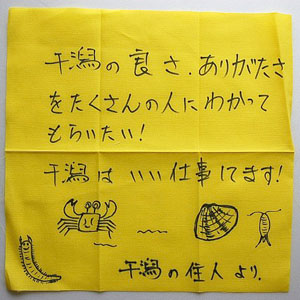 干潟の良さ.ありがたさ
をたくさんの人にわかって
もらいたい!
干潟はいい仕事してます!
干潟の住人より.